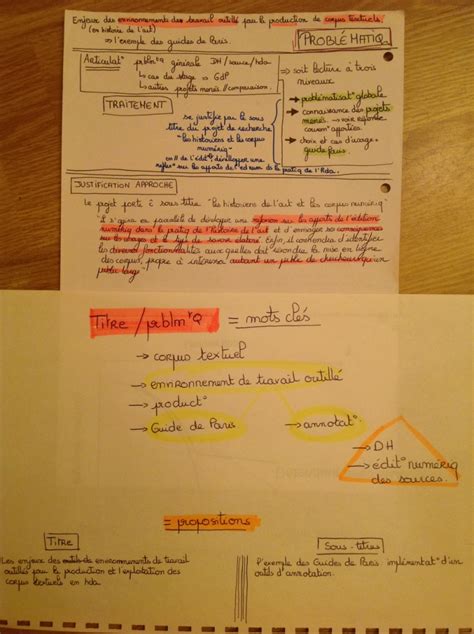 Enjeux des environnements de travail outillé par la production de corpus textuels.
(en histoire de l'art)
⇒ l'exemple des guides de Paris.
PROBLÉMATIQ
Articulat° prblm*Q générale DH/source/hda
↳ cas du stage = GdP
↳ autres projets menés // comparaison.
TRAITEMENT
se justifie par le sous
titre du projet de recherche
"les historiens et les corpus
numériq"
⇒ soit lecture à trois
niveaux
→ problématisat° globale
→ connaissance des projets
menés
→ choix et cas d'usage =
guide Paris
JUSTIFICATION APPROCHE
Le projet porte à sous titre "les historiens de l'art et les corpus numériq"
"il s'agira en parallèle de développer une réflexion sur les apports de l'édition
numériq dans la pratiq de l'histoire de l'art et d'envisager ses conséquences
sur les usages et le type de savoir élaboré. Enfin, il conviendra d'identifier
les diverses fonctionnalités auxquelles doit répondre la mise en ligne
des corpus, propre à intéresser autant un public de chercheurs qu'un
public large"
TITRE / prblm*Q = mots clés
→ corpus textuel
→ environnement de travail outillé
→ product°
→ Guide de Paris
→ annotat°
→ DH
→ édit° numériq
des sources.
= propositions
Titre
Les enjeux des outils de environnements de travail
outillés pour la production et l'exploitation des
corpus textuels en hda.
Sous-titres
l'exemple des Guides de Paris implémentat° d'un
outils d'annotation.